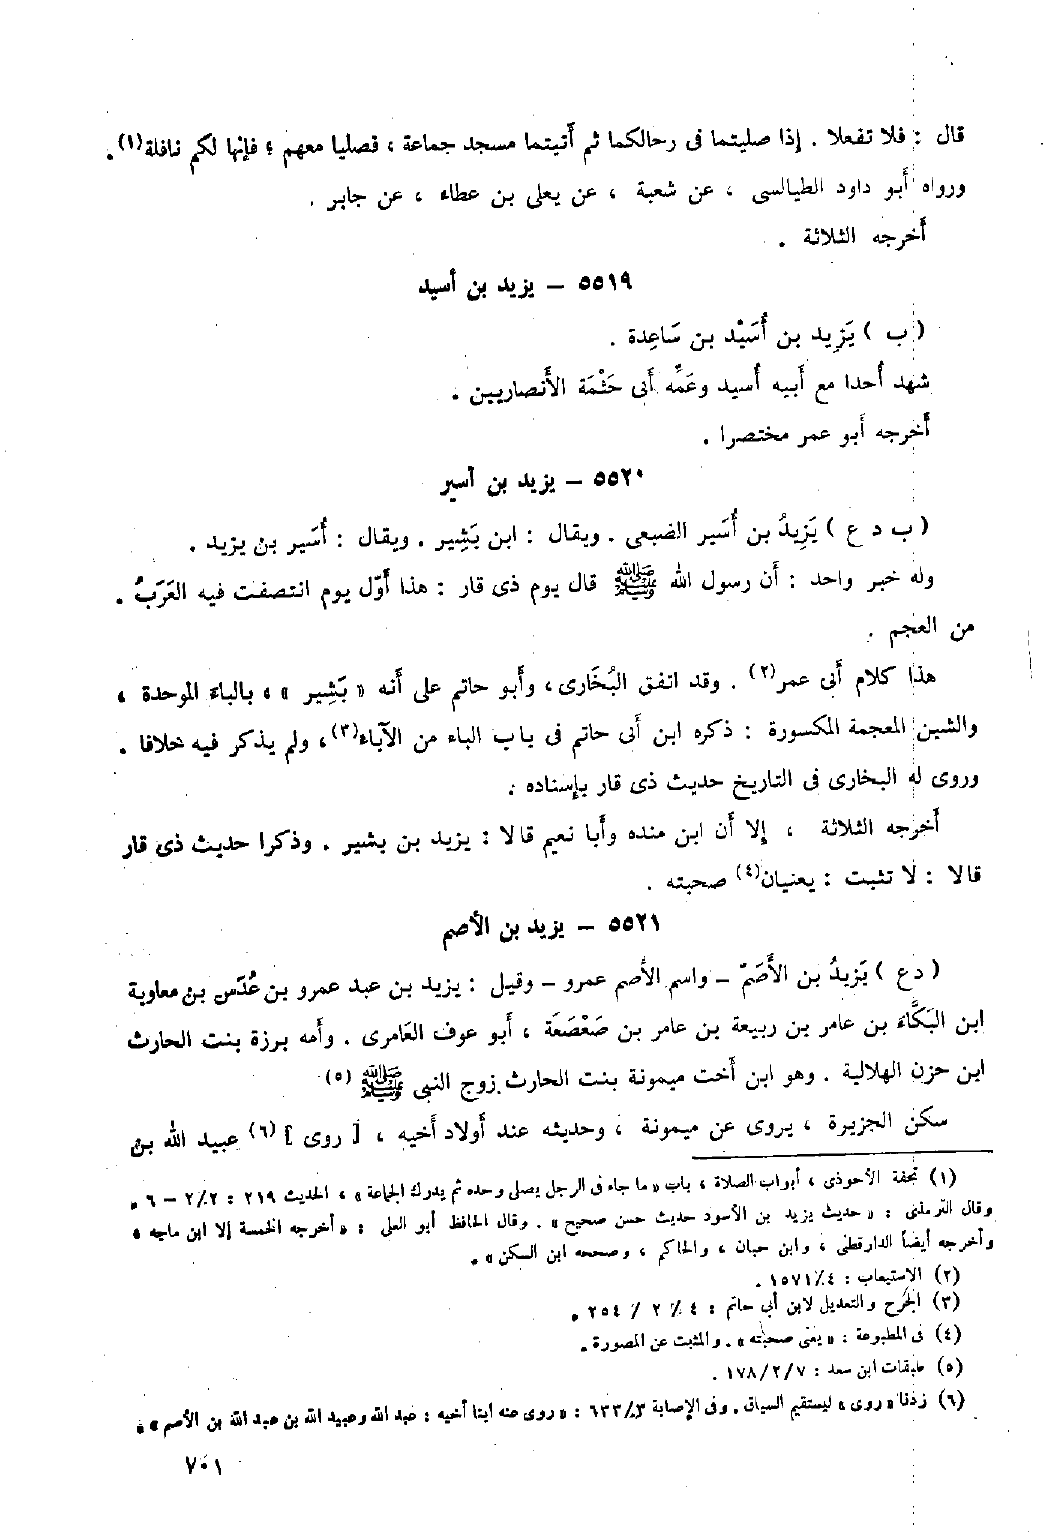 قال : فلا تفعلا . إذا صليتما فى رحالكما ثم أتيتما مسجد جماعة ، فصليا معهم ؛ فإنها لكم نافلة(١) .
ورواه أبو داود الطيالسى ، عن شعبة ، عن يعلى بن عطاء ، عن جابر .
أخرجه الثلاثة .
٥٥١٩ – يزيد بن أسيد
( ب ) يَزِيد بن أُسَيْد بن سَاعِدة .
شهد أُحدا مع أَبيه أُسيد وعَمِّه أَبى حَثْمَة الأَنصاريين .
أخرجه أبو عمر مختصرا .
٥٥٢٠ – يزيد بن أسير
( ب د ع ) يَزِيدُ بن أُسَير الضبعى . ويقال : ابن بَشِير . ويقال : أُسَير بن يزيد .
وله خبر واحد : أن رسول الله ﷺ قال يوم ذى قار : هذا أوّل يوم انتصفت فيه العَرَبُ .
من العجم .
هذا كلام أبى عمر(٢) . وقد اتفق البُخَارى ، وأبو حاتم على أنه « بَشِير » ، بالباء الموحدة ،
والشين المعجمة المكسورة : ذكره ابن أبى حاتم فى باب الباء من الآباء(٣) ، ولم يذكر فيه خلافا .
وروى له البخارى فى التاريخ حديث ذى قار بإسناده .
أخرجه الثلاثة ، إلا أن ابن منده وأبا نعيم قالا : يزيد بن بشير . وذكرا حديث ذى قار
قالا : لا تثبت : يعنيان(٤) صحبته .
٥٥٢١ – يزيد بن الأصم
( دع ) يَزِيدُ بن الأَصَمّ – واسم الأصم عمرو – وقيل : يزيد بن عبد عمرو بن عُدَس بن معاوية
ابن البَكَّاءَ بن عامر بن ربيعة بن عامر بن صَعْصَعَة ، أبو عوف العَامرى . وأمه برزة بنت الحارث
ابن حزن الهلالية . وهو ابن أخت ميمونة بنت الحارث زوج النبى ﷺ (٥)
سكن الجزيرة ، يروى عن ميمونة ، وحديثه عند أولاد أخيه ، [ روى ] (٦) عبيد الله بن
(١) تحفة الأحوذى ، أبواب الصلاة ، باب « ما جاء فى الرجل يصلى وحده ثم يدرك الجماعة » ، الحديث ٢١٩ : ٢/٢ – ٦ .
وقال الترمذى : « حديث يزيد بن الأسود حديث حسن صحيح » . وقال الحافظ أبو العلى : « أخرجه الخمسة إلا ابن ماجه »
وأخرجه أيضاً الدارقطنى ، وابن حبان ، والحاكم ، وصححه ابن السكن » .
(٢) الاستيعاب : ١٥٧١/٤ .
(٣) الجَرح والتعديل لابن أبي حاتم : ٤ / ٢ / ٢٥٤ .
(٤) فى المطبوعة : « يعنى صحبته » . والمثبت عن المصورة .
(٥) طبقات ابن سعد : ١٧٨/٢/٧ .
(٦) زدنا « روى » ليستقيم السياق . وفى الإصابة ٦٣٣/٣ : « روى عنه ابنا أخيه : عبد الله وعبيد الله بن عبد الله بن الأصم » .
٧٠١